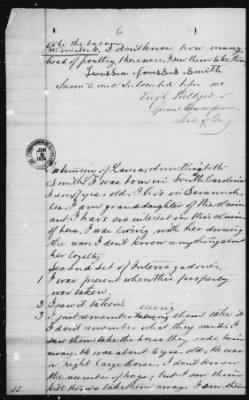 6
take the bacon
I don't know how many
head of poultry there were. I saw them take them
Smith
Sworn to and subscribed before me
Virgil Hillyer
Special Commissioner
Testimony of
Smith I was born in South Carolina
I am years old. I live in Savannah,
Ga. I am granddaughter of the claim
ant. I have no interest in this claim
of hers. I was living with her during
the war. I don't know anything about
her loyalty
Second set of Interrogatories
1 I was present when this property
was taken.
2 I saw it taken
3 I just remember seeing them take it
I don't remember what they said. I
saw them take the horse they rode him
away. He was about 6 years old. He was
a right large horse. I don't know
the number of hogs, but I saw them
kill them & take them away. I saw them